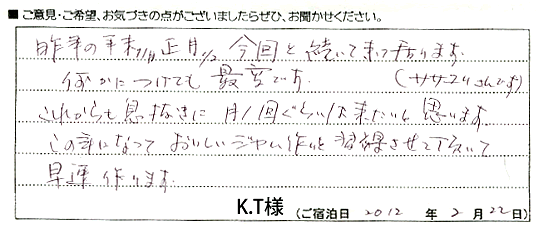 ■ ご意見・ご希望、お気づきの点がございましたらぜひ、お聞かせください。
昨年の年末 正月 今回と続いて来て居ります。
何かにつけても最高です。
これからも息抜きに月1回ぐらいは来たいと思います。
この年になっておいしいジャム作りを習得させて頂いて
早速作ります。
K.T様 (ご宿泊日 2012 年 2 月 22 日)